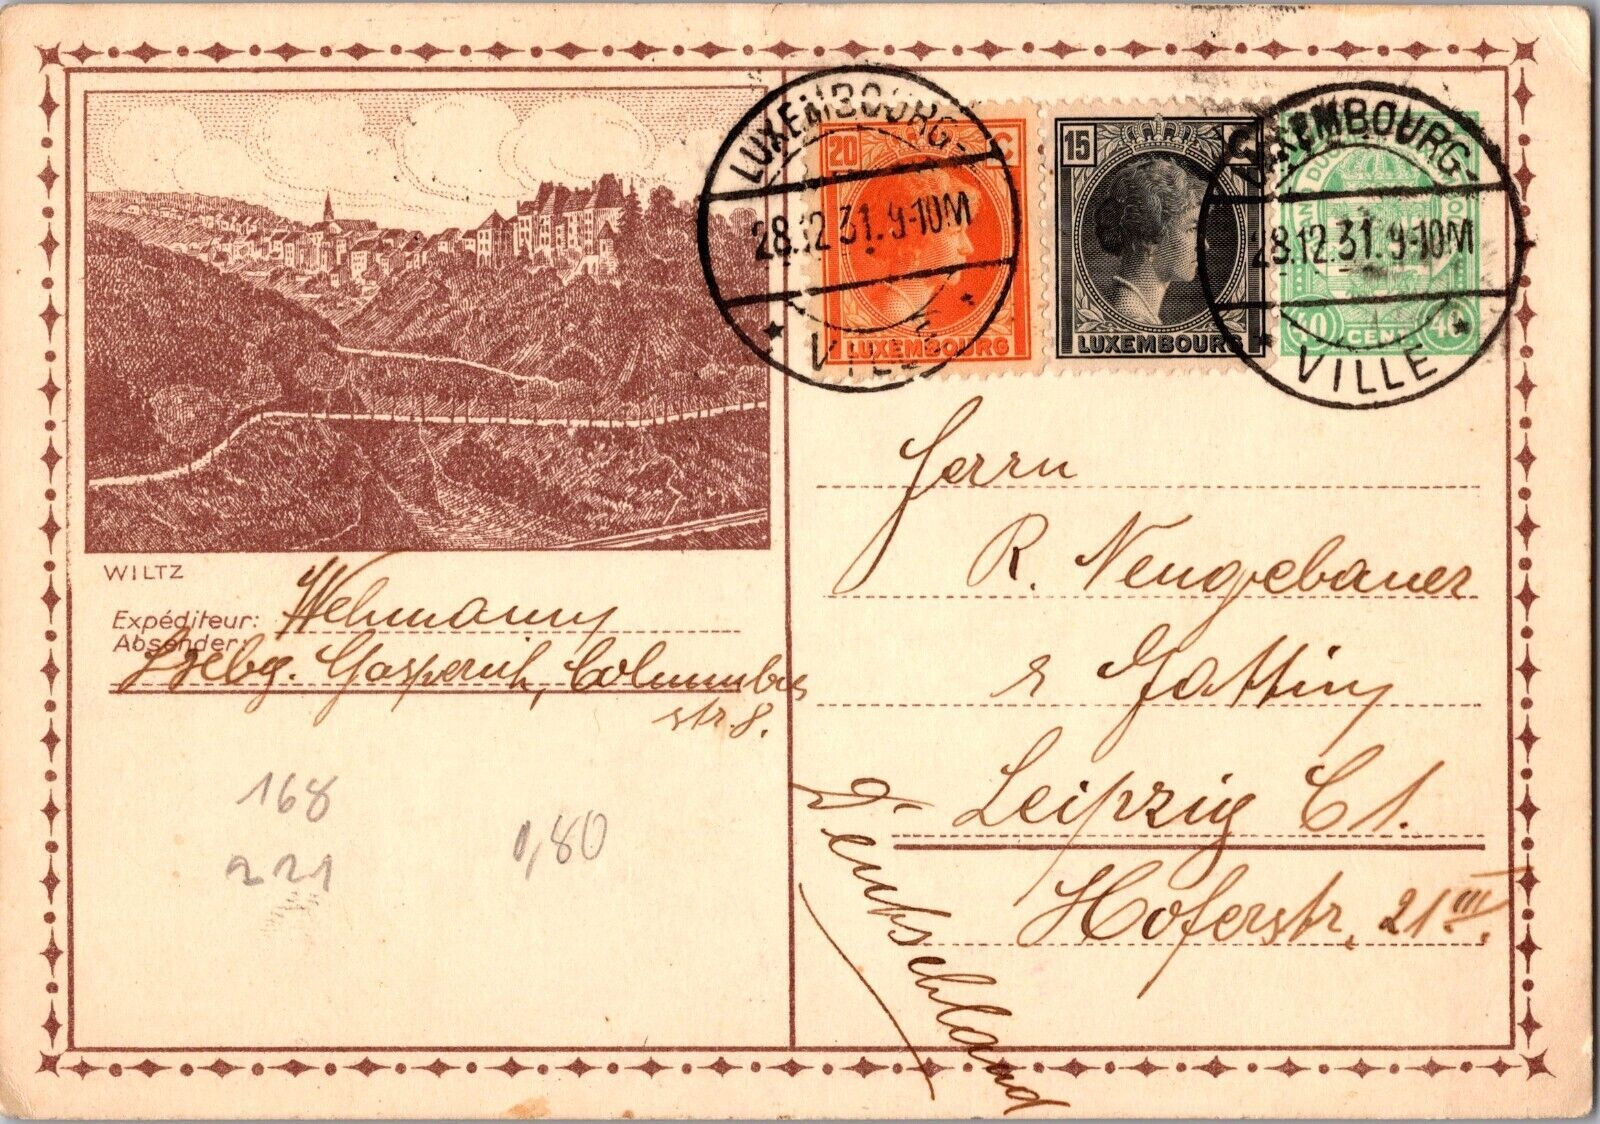 LUXEMBOURG-
28.12.31.9-10M
VILLE
20 C
LUXEMBOURG
15 C
LUXEMBOURG
LUXEMBOURG-
28.12.31.9-10M
VILLE
40 CENT. 40
WILTZ
Expéditeur: Wehmann
Absender:
Lxebg. Gasperich, Columbus
str. 8.
168
221
1,80
Herrn
R. Neugebauer
& Gattin
Leipzig C 1.
Hoferstr. 21 III.
Deutschland